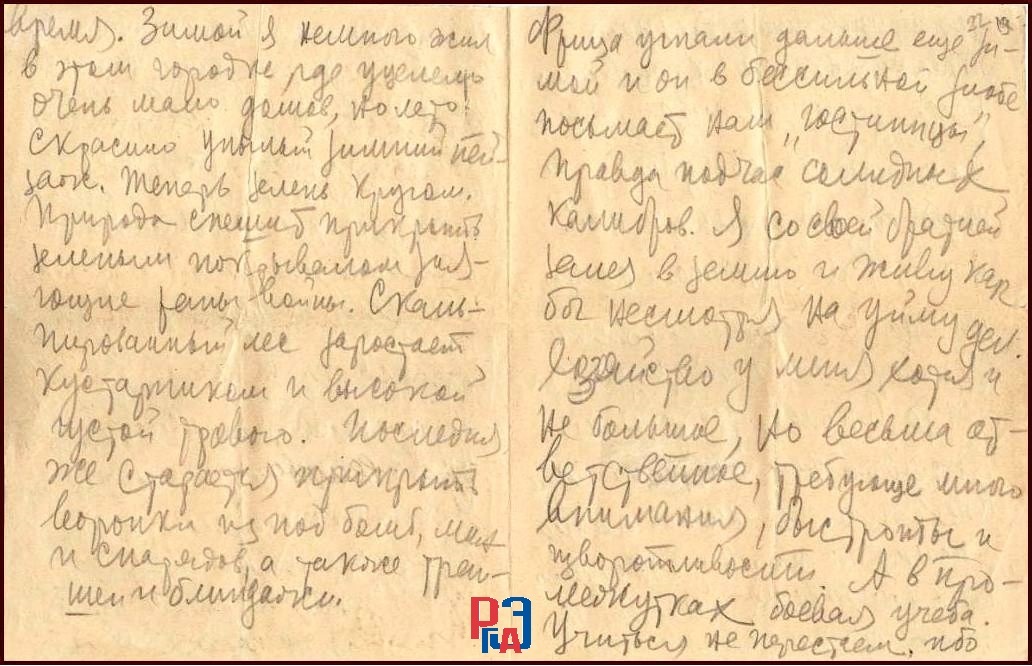 время. Зимой я немного жил
в этом городке, где уцелело
очень мало домов, но лето
скрасило унылый зимний пей-
заж. Теперь зелень кругом.
Природа спешит прикрыть
зеленым покрывалом зия-
ющие раны войны. Скаль-
пированный лес заростает
кустарником и высокой
густой травою. Последняя
же старается прикрыть
воронки из под бомб, мин
и снарядов, а также тран-
шеи и блиндажи.
Фрица угнали дальше еще зи-
мой и он в бессильной злобе
посылает нам „гостинцы",
правда подчас солидных
калибров. Я со своей братией
залез в землю и живу как
бы несмотря на уйму дел.
Хозяйство у меня хотя и
не большое, но весьма от-
ветственное, требующее много
внимания, быстроты и
изворотливости. А в про-
межутках боевая учеба.
Учиться не перестаем, ибо
РГАЭ